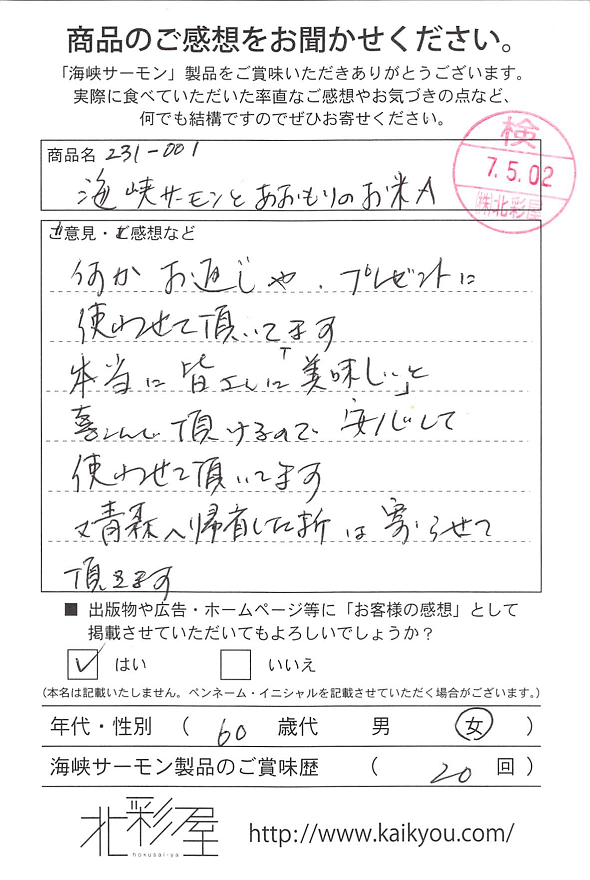 商品のご感想をお聞かせください。
「海峡サーモン」製品をご賞味いただきありがとうございます。
実際に食べていただいた率直なご感想やお気づきの点など、
何でも結構ですのでぜひお寄せください。
検
7.5.02
㈱北彩屋
商品名 231-001
海峡サーモンとあおもりのお米A
ご意見・ご感想など
何か お返しや、プレゼントに
使わせて頂いてます
本当に皆さんに「美味しい」と
喜んで頂けるので 安心して
使わせて頂いてます
又青森へ帰省した折は寄らせて
頂きます
■ 出版物や広告・ホームページ等に「お客様の感想」として
掲載させていただいてもよろしいでしょうか？
はい いいえ
（本名は記載いたしません。ペンネーム・イニシャルを記載させていただく場合がございます。）
年代・性別 （ 60 歳代 男 女 ）
海峡サーモン製品のご賞味歴 （ 20 回 ）
北彩屋
hokusai-ya
http://www.kaikyou.com/